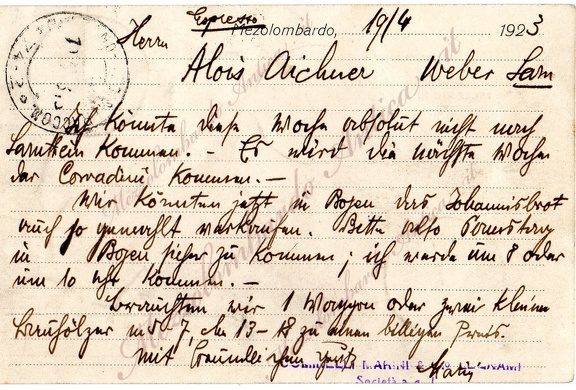 Espresso
Mezolombardo, 19/4 1923
Herrn
Alois Aichner Weber Sarn
Ich könnte diese Woche absolut nicht nach
Sarnthein kommen. – Es wird die nächste Woche
der Corradini kommen. –
Wir könnten jetzt in Bozen das Johannisbrot
auch so gemahlt verkaufen. Bitte also Samstag
in Bozen sicher zu kommen; ich werde um 8 oder
um 10 Uhr kommen. –
Brauchten wir 1 Waggon oder zwei kleine
Brennhölzer 13-18 zu einen billigen Preis.
Mit freundlichen Gruß
MARINI LEGNAMI
Società